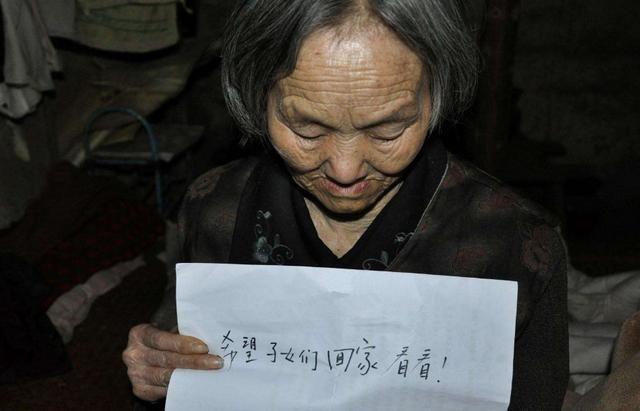 希望子女们回家看看!